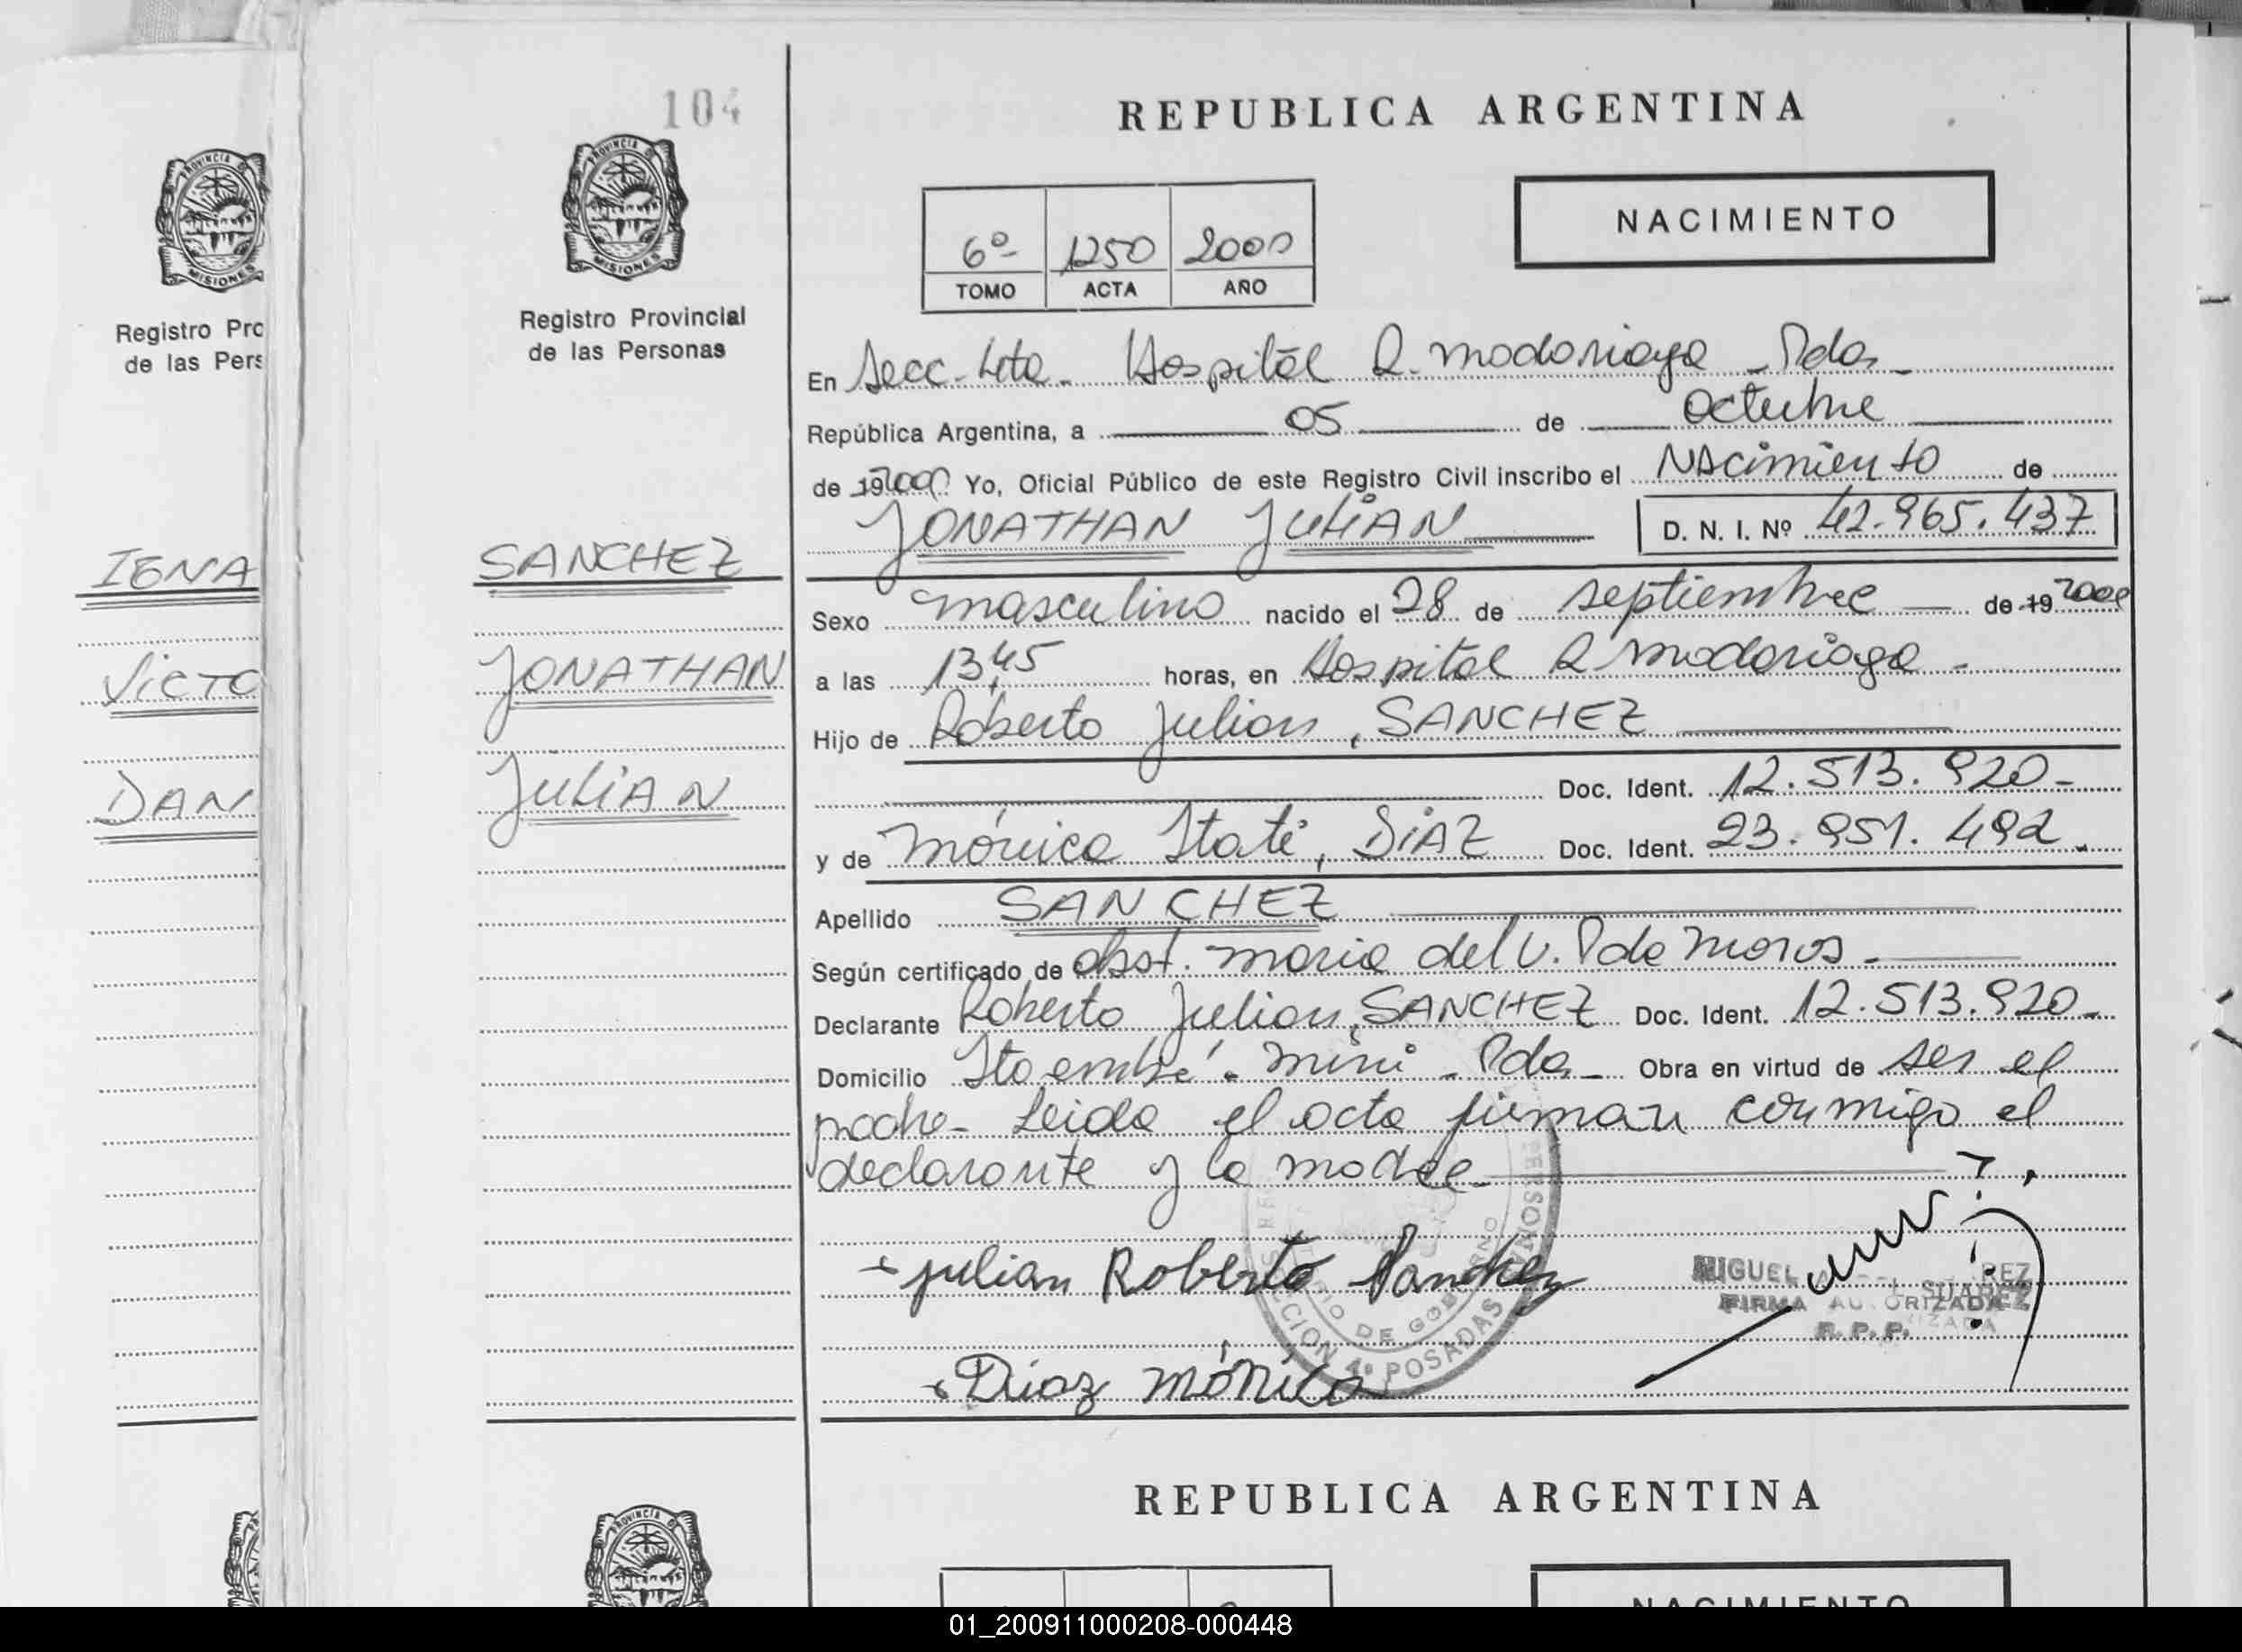 104
REPUBLICA ARGENTINA
PROVINCIA DE
MISIONES
Registro Pro
de las Pers
Registro Provincial
de las Personas
NACIMIENTO
6º 1250 2000
TOMO ACTA AÑO
En Secc. 4ta. Hospital R. Madariaga - Pdas -
República Argentina, a 05 de octubre
de 192000 Yo, Oficial Público de este Registro Civil inscribo el Nacimiento de
JONATHAN JULIAN D. N. I. Nº 42.965.437
IGNA
VICTO
DAN
SANCHEZ
JONATHAN
JULIAN
Sexo masculino nacido el 28 de septiembre de 19 2000
a las 13,45 horas, en Hospital R Madariaga -
Hijo de Roberto Julian, SANCHEZ
Doc. Ident. 12.513.920-
y de Mónica Itatí, DIAZ Doc. Ident. 23.951.492.
Apellido SANCHEZ
Según certificado de obst. Maria del V. P de Moros -
Declarante Roberto Julian, SANCHEZ Doc. Ident. 12.513.920-
Domicilio Itaembé - Mini - Pdas - Obra en virtud de ser el
padre - Leida el acta firman conmigo el
declarante y la madre -
julian Roberto Sanchez
Diaz Mónica
MIGUEL SUAREZ
FIRMA AUTORIZADA
R. P. P.
DE GOBIERNO
SECCION 4ª POSADAS
REPUBLICA ARGENTINA
PROVINCIA DE
NACIMIENTO
01_200911000208-000448